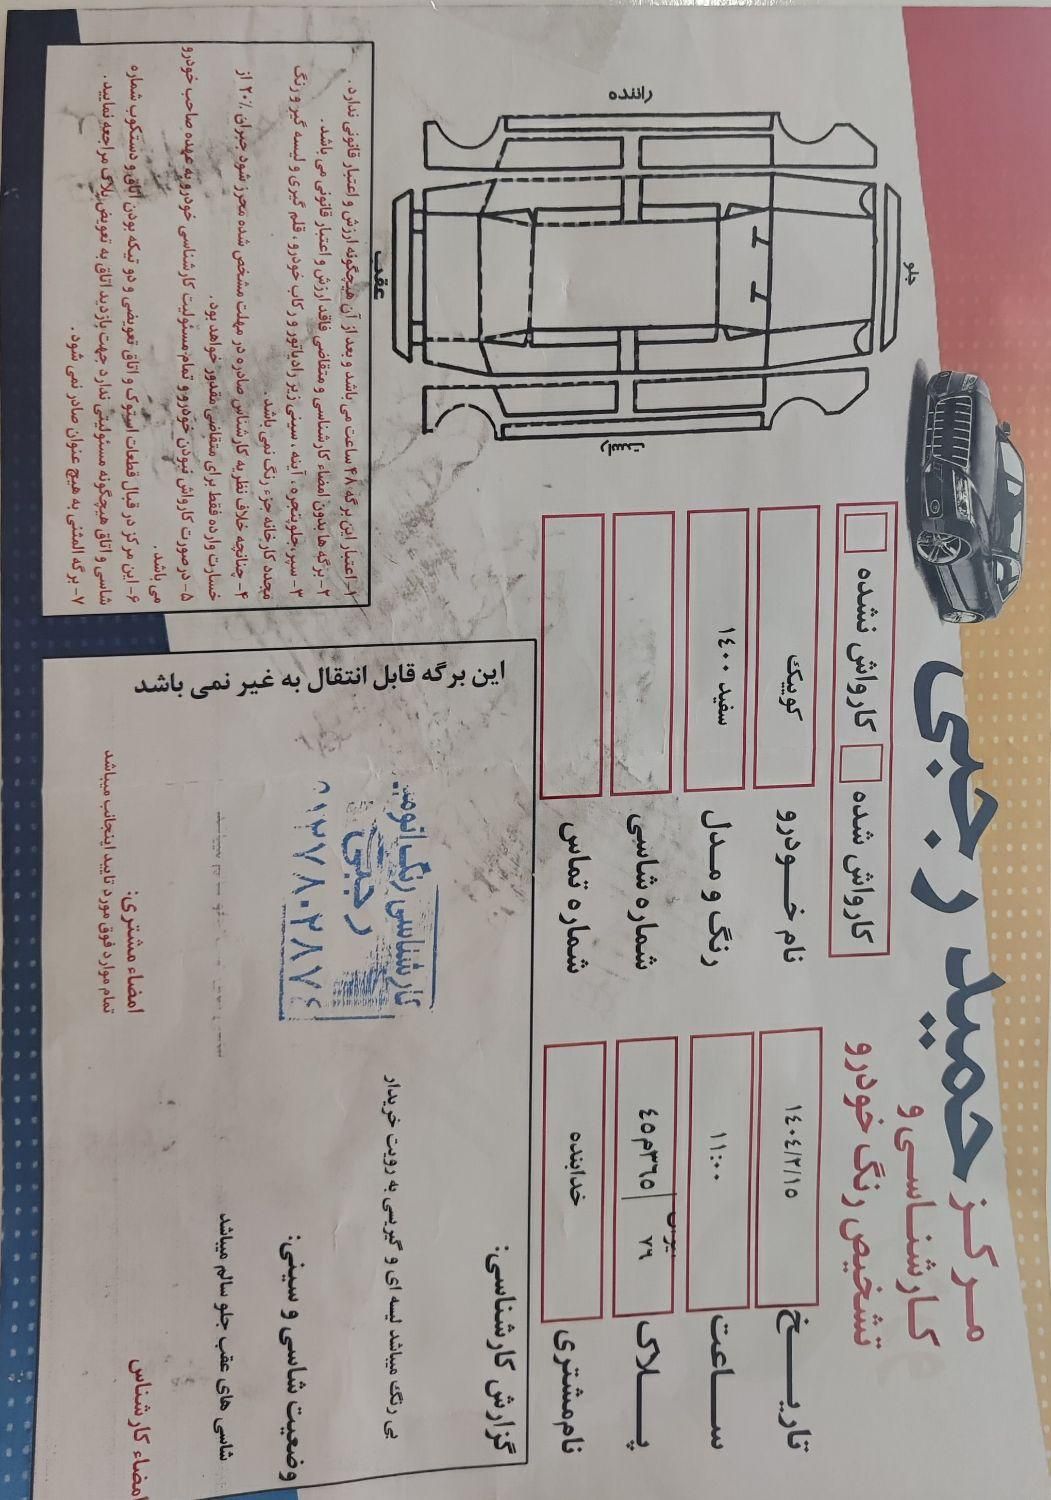 مرکز
حمید رجبی
کارشناسی و
تشخیص رنگ خودرو
کارواش شده
کارواش نشده
تاریخ
۱۴۰۴/۲/۱۵
نام خودرو
کوییک
ساعت
۱۱:۰۰
رنگ و مدل
سفید ۱۴۰۰
پلاک
۴۵م۳۶۵
۷۶
شماره شاسی
نام مشتری
خدابنده
شماره تماس
جلو
راننده
عقب
گزارش کارشناسی:
بی رنگ میباشد لیسه ای و گیربسی به رویت خریدار
وضعیت شاسی و سینی:
شاسی های عقب جلو سالم میباشد
امضاء کارشناس
امضاء مشتری:
تمام موارد فوق مورد تایید اینجانب میباشد
کارشناسی رنگ
رجبی
این برگه قابل انتقال به غیر نمی باشد
۱- اعتبار این برگه ۴۸ ساعت می باشد و بعد از آن هیچگونه ارزش و اعتبار قانونی ندارد.
۲- برگه ها بدون امضاء کارشناسی و متقاضی فاقد ارزش و اعتبار قانونی می باشد.
۳- سپر، جلوپنجره، آینه، سینی زیر رادیاتور و رکاب خودرو، قلم گیری و لیسه گیر و رنگ
مجدد کارخانه جزء رنگ نمی باشد
۴- چنانچه خلاف نظریه کارشناس صادره در مهلت مشخص شده محرز شود جبران ۲۰٪ از
خسارت وارده فقط برای متقاضی مقدور خواهد بود.
۵- درصورت کارواش نبودن خودرو و تمام مسئولیت کارشناسی خودرو به عهده صاحب خودرو
می باشد.
۶- این مرکز در قبال قطعات استوک و اتاق تعویضی و دو تیکه بودن اتاق و دستکوب شماره
شاسی و اتاق هیچگونه مسئولیتی ندارد جهت بازدید اتاق به تعویض پلاک مراجعه نمایید.
۷- برگه المثنی به هیچ عنوان صادر نمی شود.